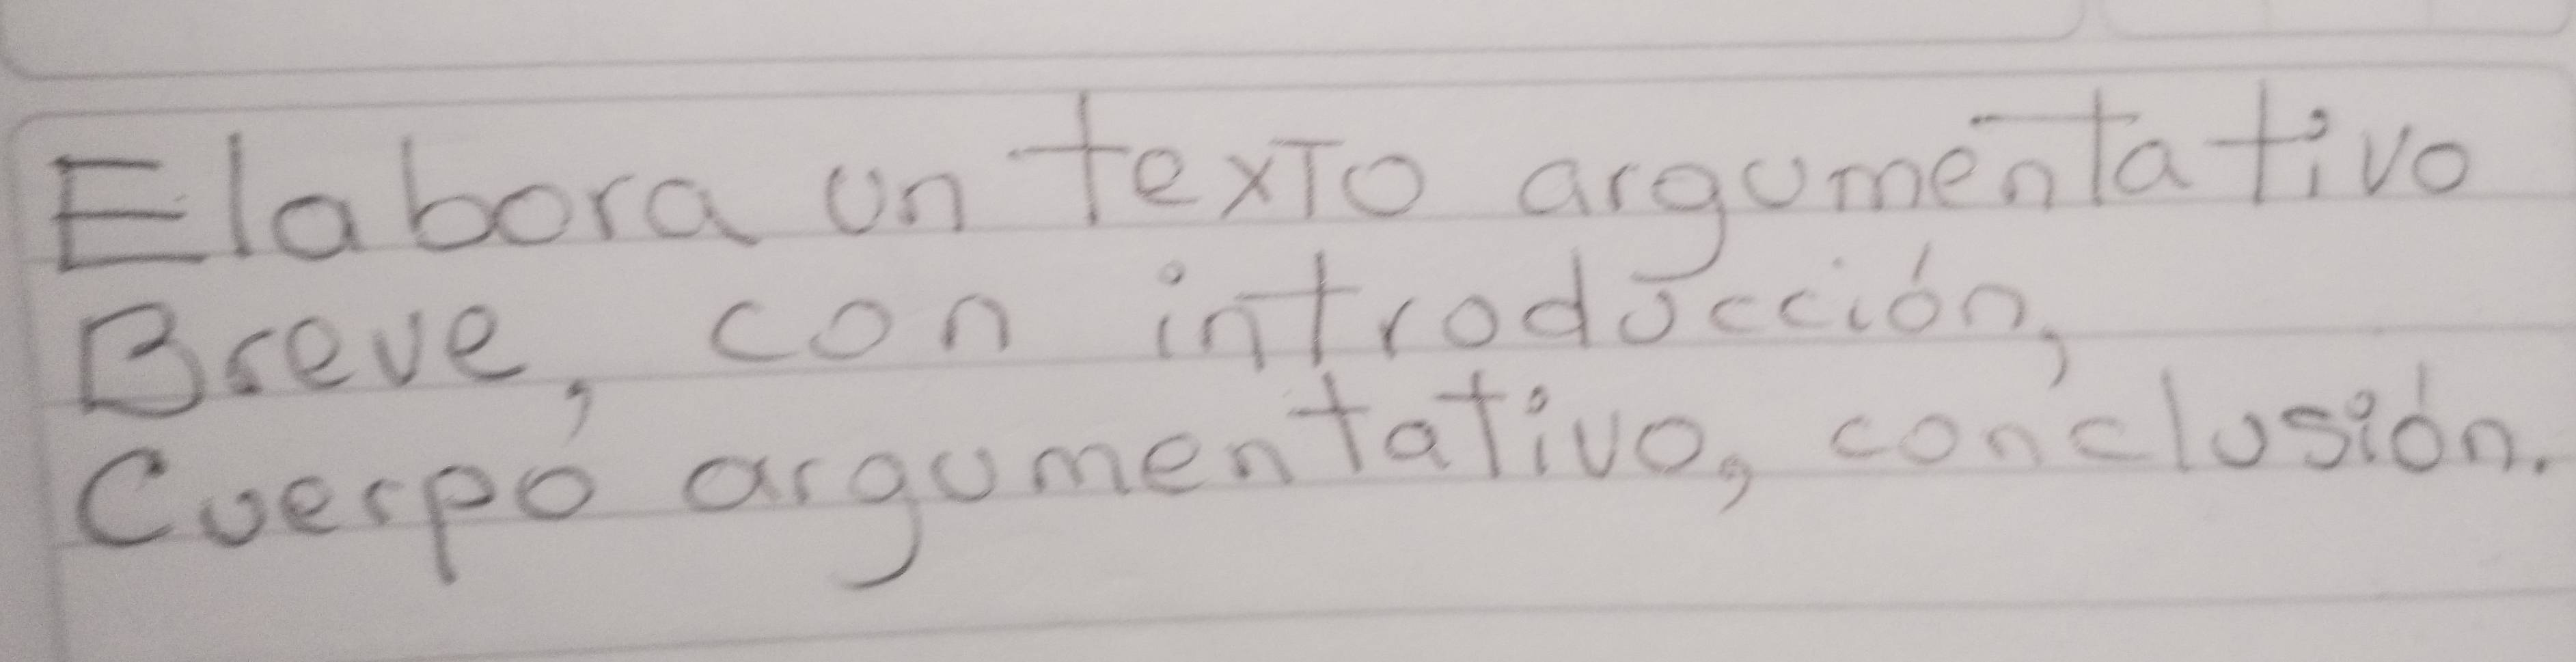 Elabora un texto argumentativo
Breve, con introducción,
Cuerpo argumentativo, conclusión.